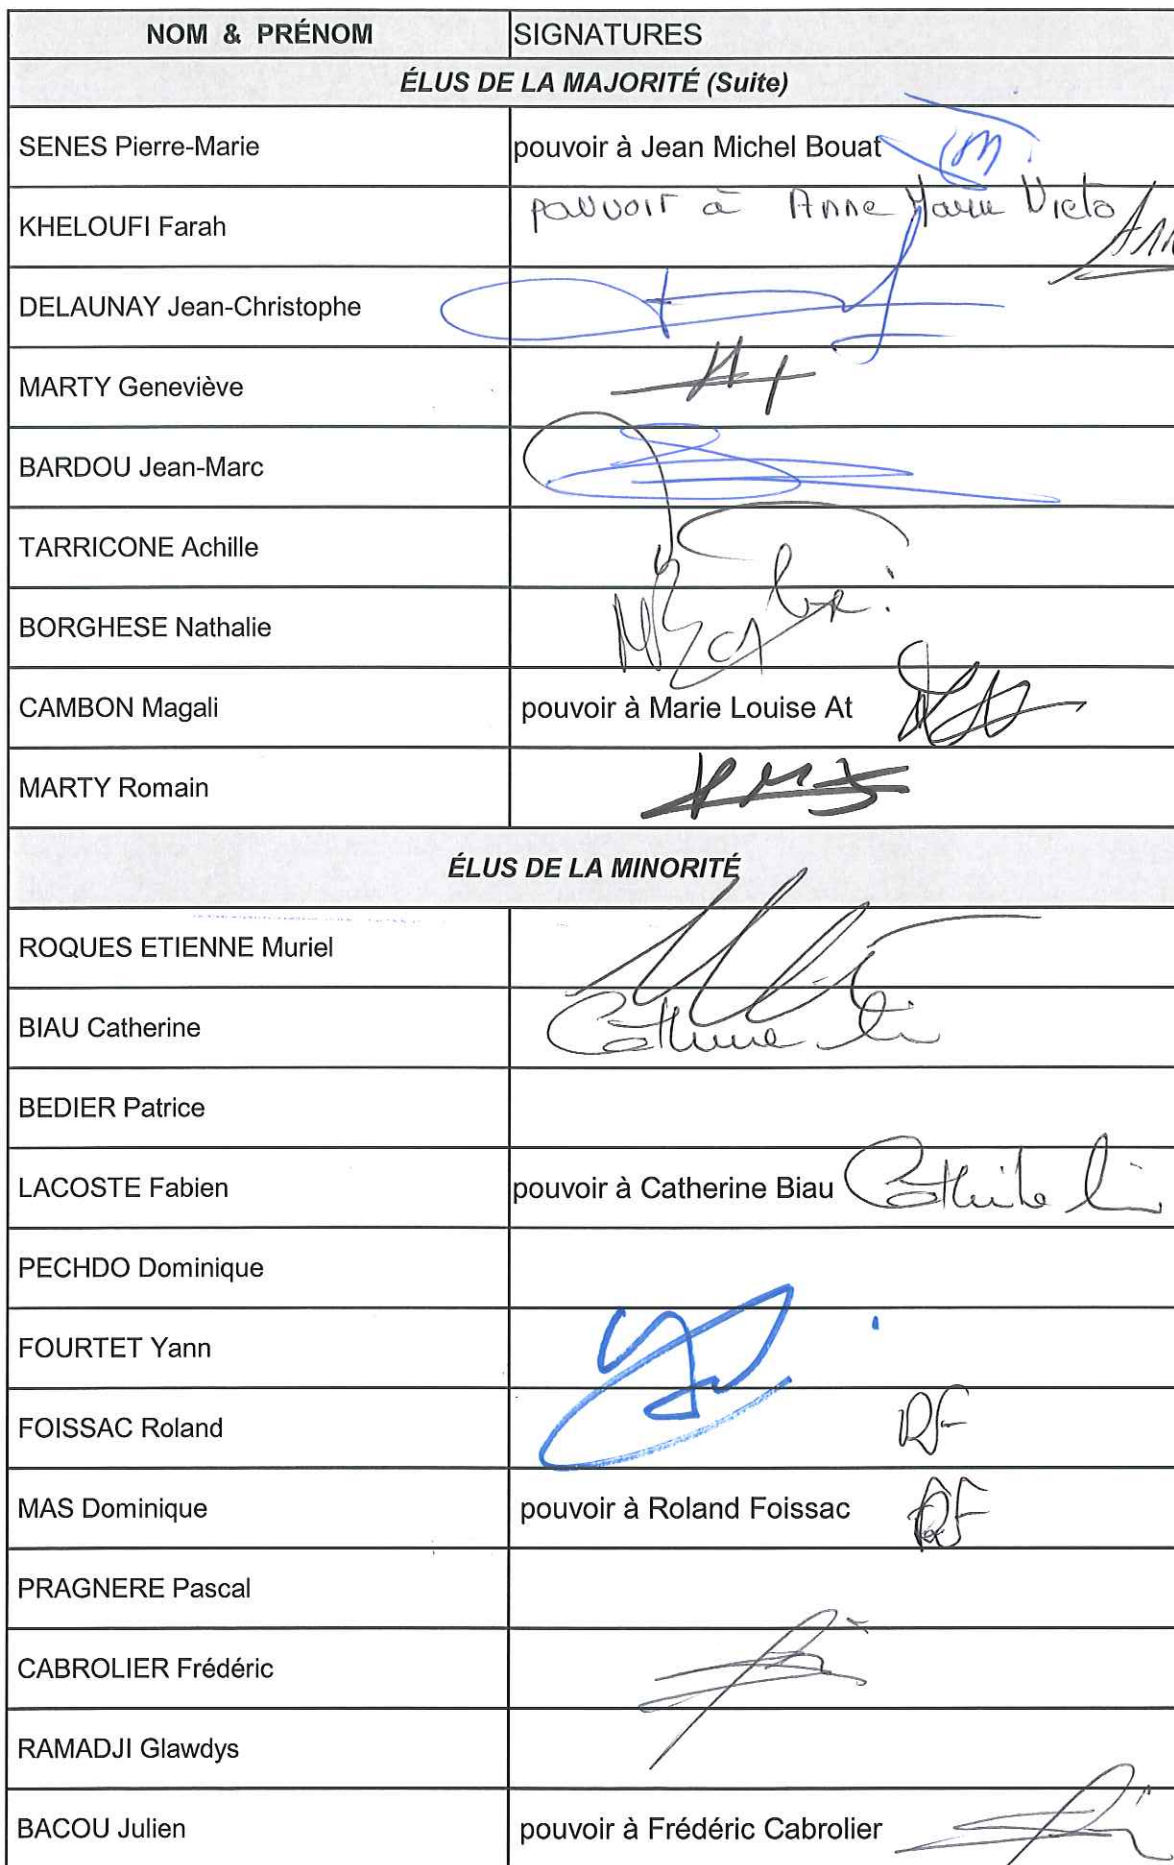 NOM & PRÉNOM SIGNATURES
ÉLUS DE LA MAJORITÉ (Suite)
SENES Pierre-Marie pouvoir à Jean Michel Bouat
KHELOUFI Farah pouvoir à Anne Marie
DELAUNAY Jean-Christophe
MARTY Geneviève
BARDOU Jean-Marc
TARRICONE Achille
BORGHESE Nathalie
CAMBON Magali pouvoir à Marie Louise At
MARTY Romain
ÉLUS DE LA MINORITÉ
ROQUES ETIENNE Muriel
BIAU Catherine Catherine
BEDIER Patrice
LACOSTE Fabien pouvoir à Catherine Biau Catherine
PECHDO Dominique
FOURTET Yann
FOISSAC Roland RF
MAS Dominique pouvoir à Roland Foissac RF
PRAGNERE Pascal
CABROLIER Frédéric
RAMADJI Glawdys
BACOU Julien pouvoir à Frédéric Cabrolier